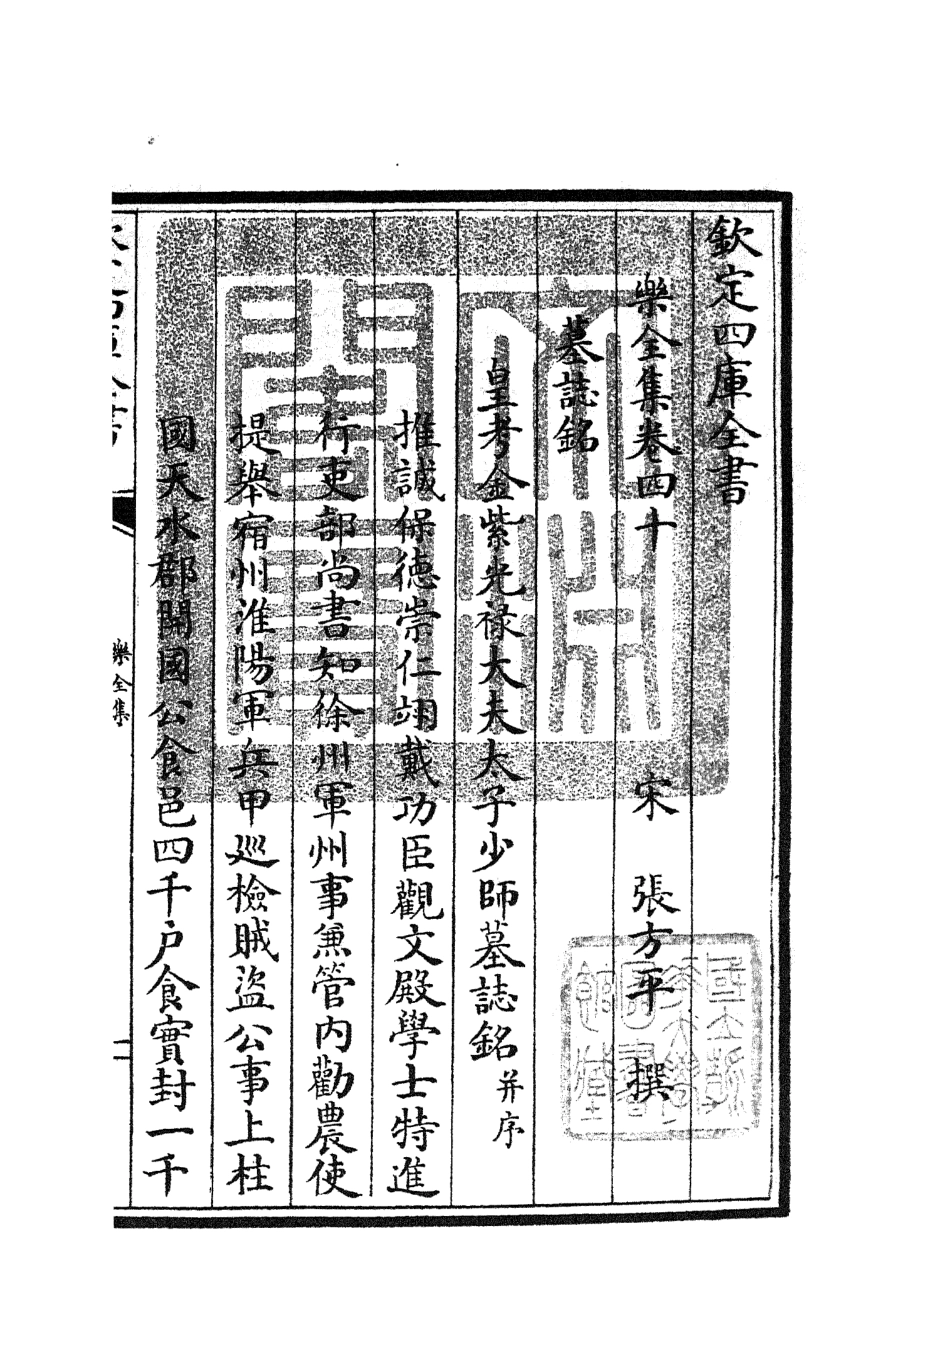 欽定四庫全書
樂全集卷四十
宋 張方平 撰
墓誌銘
皇考金紫光祿大夫太子少師墓誌銘并序
推誠保德崇仁翊戴功臣觀文殿學士特進
行吏部尚書知徐州軍州事兼管內勸農使
提舉宿州淮陽軍兵甲巡檢賊盜公事上柱
國天水郡開國公食邑四千户食實封一千
樂全集